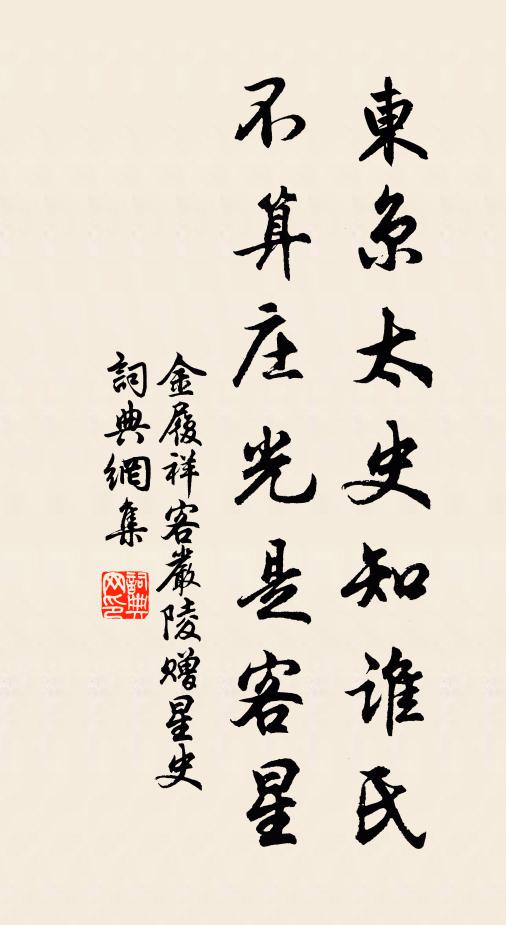 東京太史知誰氏
不算庄光是客星
金履祥客嚴陵贈星史
詞典網集
詞典網印